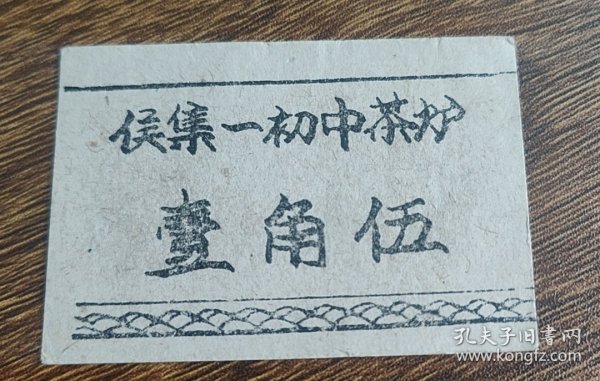 侯集一初中茶炉
壹角伍
孔夫子旧書网
www.kongfz.com